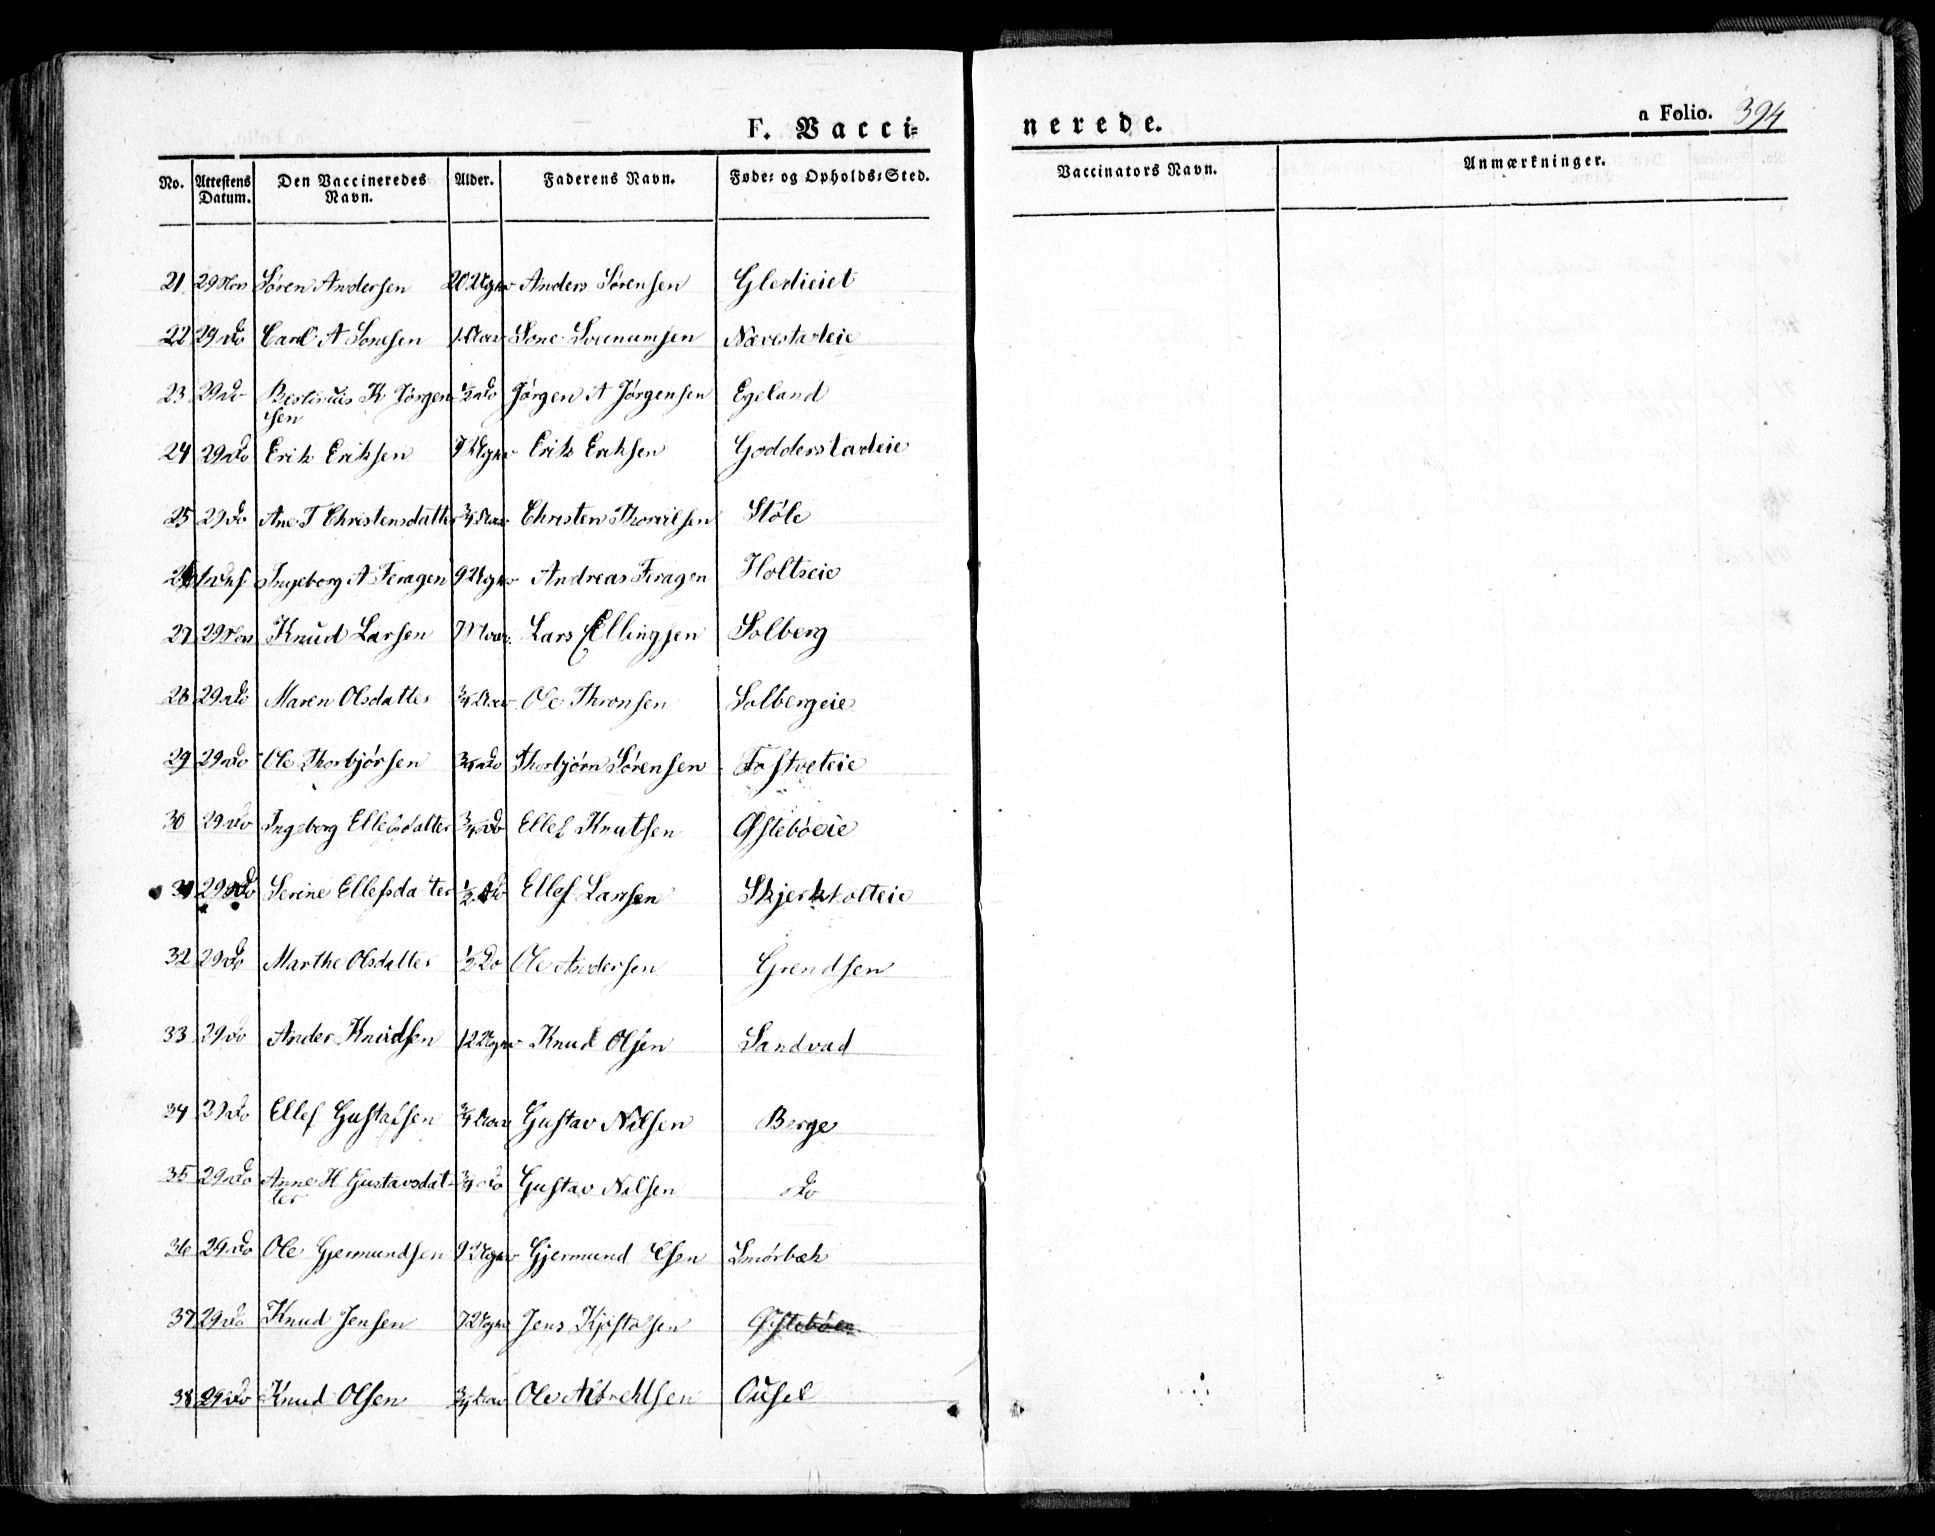 F. Vacci=
nerede.
a Folio. 394
No. Attestens Datum. Den Vaccineredes Navn. Alder. Faderens Navn. Føde= og Opholds=Sted. Vaccinators Navn. Anmærkninger.
21 29 Nov Søren Andersen 20 Uger Anders Sørensen
22 29 do Carl A Sonesen 1 Aar Sone
23 29 do K Jørgen ½ do Jørgen A Jørgensen Egeland
sen
24 29 do Erik Eriksen 9 Uger Erik Eriksen Godderstadeie
25 29 do Ane T Christensdatter ¾ Aar Christen Stöle
26 Ingeborg A Feragen 9 Uger Andreas Feragen Holtseie
27 29 Nov Knud Larsen 7 Lars Ellingsen Solberg
28 29 do Maren Olsdatter ¾ Aar Ole Thronsen Solbergeie
29 29 do Ole Thorbjørsen ¾ do Thorbjørn Sørensen Fostveteie
30 29 do Ingeborg Ellefsdatter ¾ do Ellef Knutsen Østebøeie
31 29 do Serine Ellefsdatter ½ do Ellef Larsen Skjerkholteie
32 29 do Marthe Olsdatter ½ do Ole Andersen Grendsen
33 29 do Ander Knudsen 12 Uger Knud Olsen Sandvad
34 29 do Ellef Gustavsen ¾ Aar Gustav Nilsen Berge
35 29 do Anne H Gustavsdat- ¾ do Gustav Nilsen do
ter
36 29 do Ole Gjermundsen 9 Uger Gjermund Smörbæk
37 29 do Knud Jensen 7 Uger Jens Østebøen
38 29 do Knud Olsen ¾ Aar Ole Albrektsen Ousel